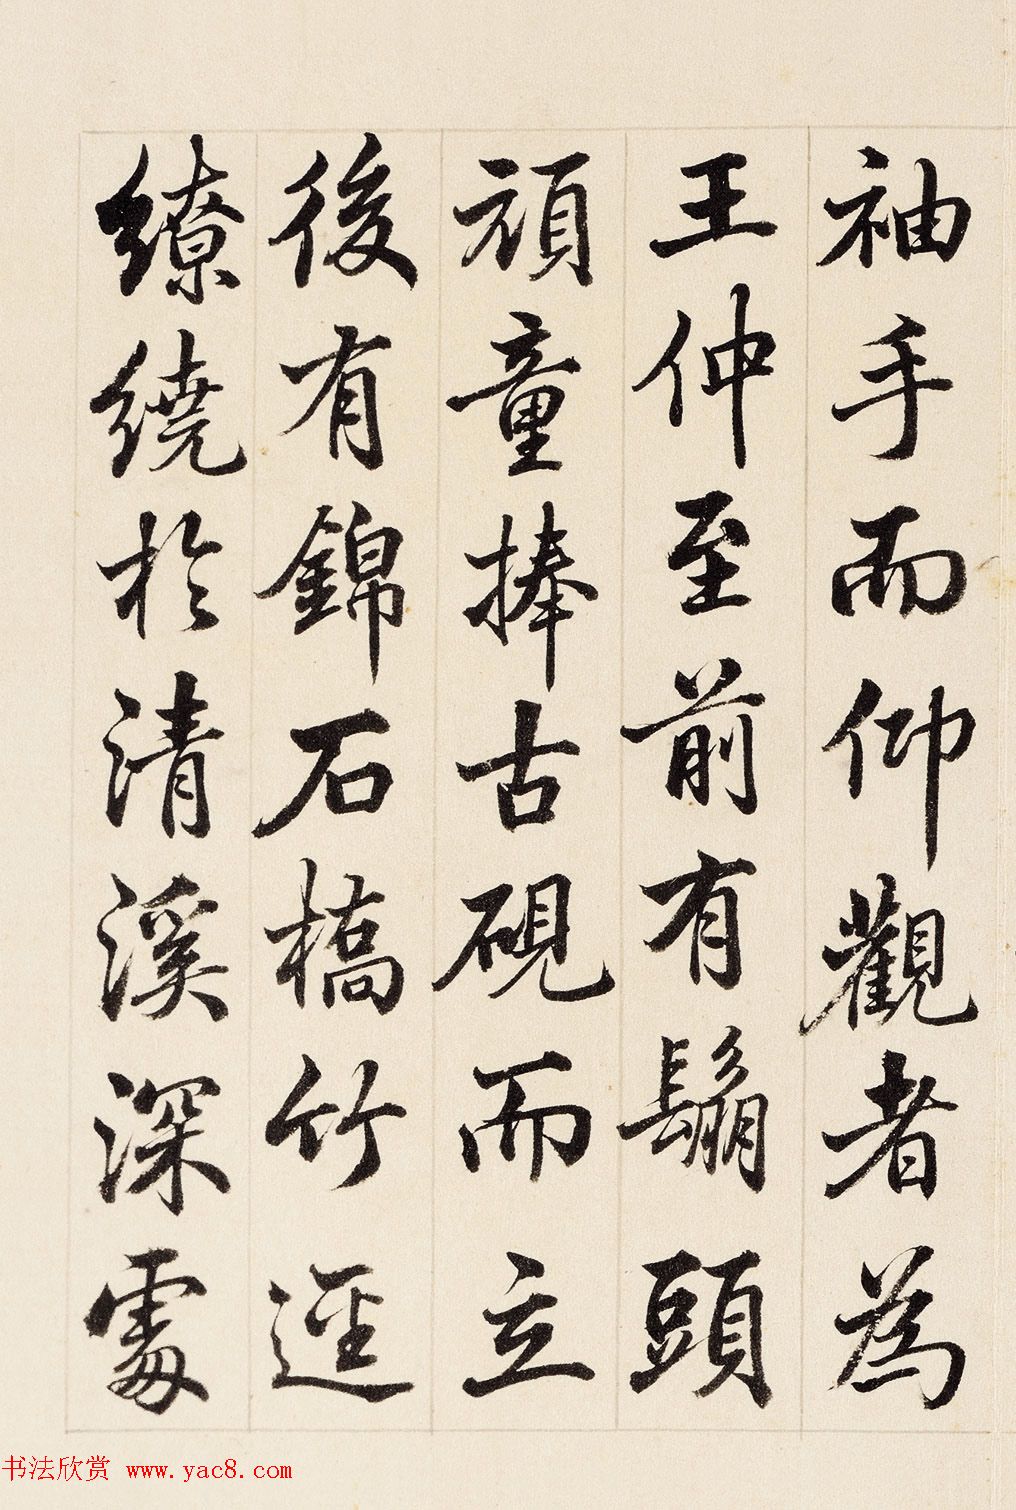 袖手而仰觀者為
王仲至前有鬅頭
頑童捧古硯而立
後有錦石橋竹逕
繚繞於清溪深處
书法欣赏 www.yac8.com